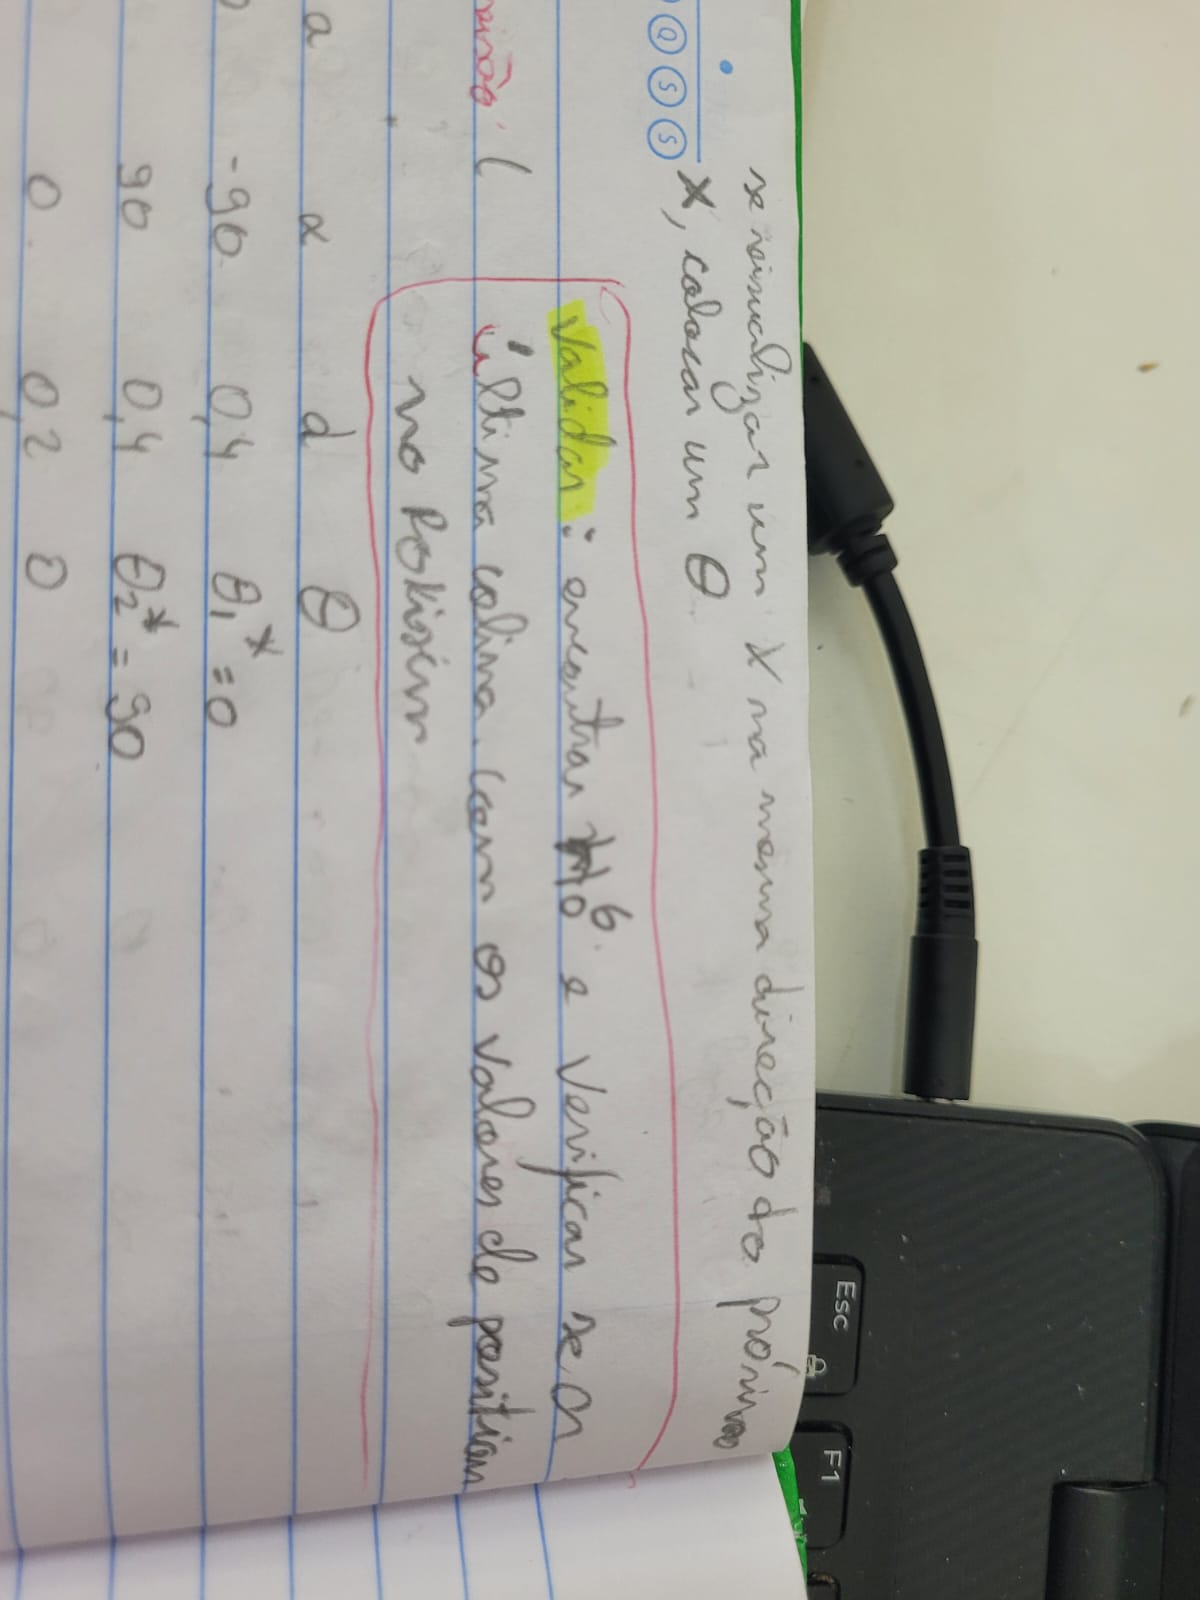 Esc F1
se visualizar um X na mesma direção do próximo
X, colocar um θ
Q S S
validar: encontrar H0^6 e verificar se a
última coluna com os valores de position
( no Rokisim
a α d θ
-90 0,4 θ1* = 0
90 0,4 θ2* = 90
0 0,2 0